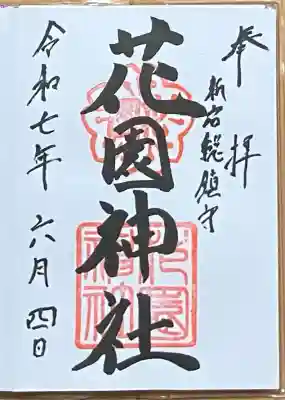 奉拝
新宿総鎮守
花園神社
令和七年六月四日